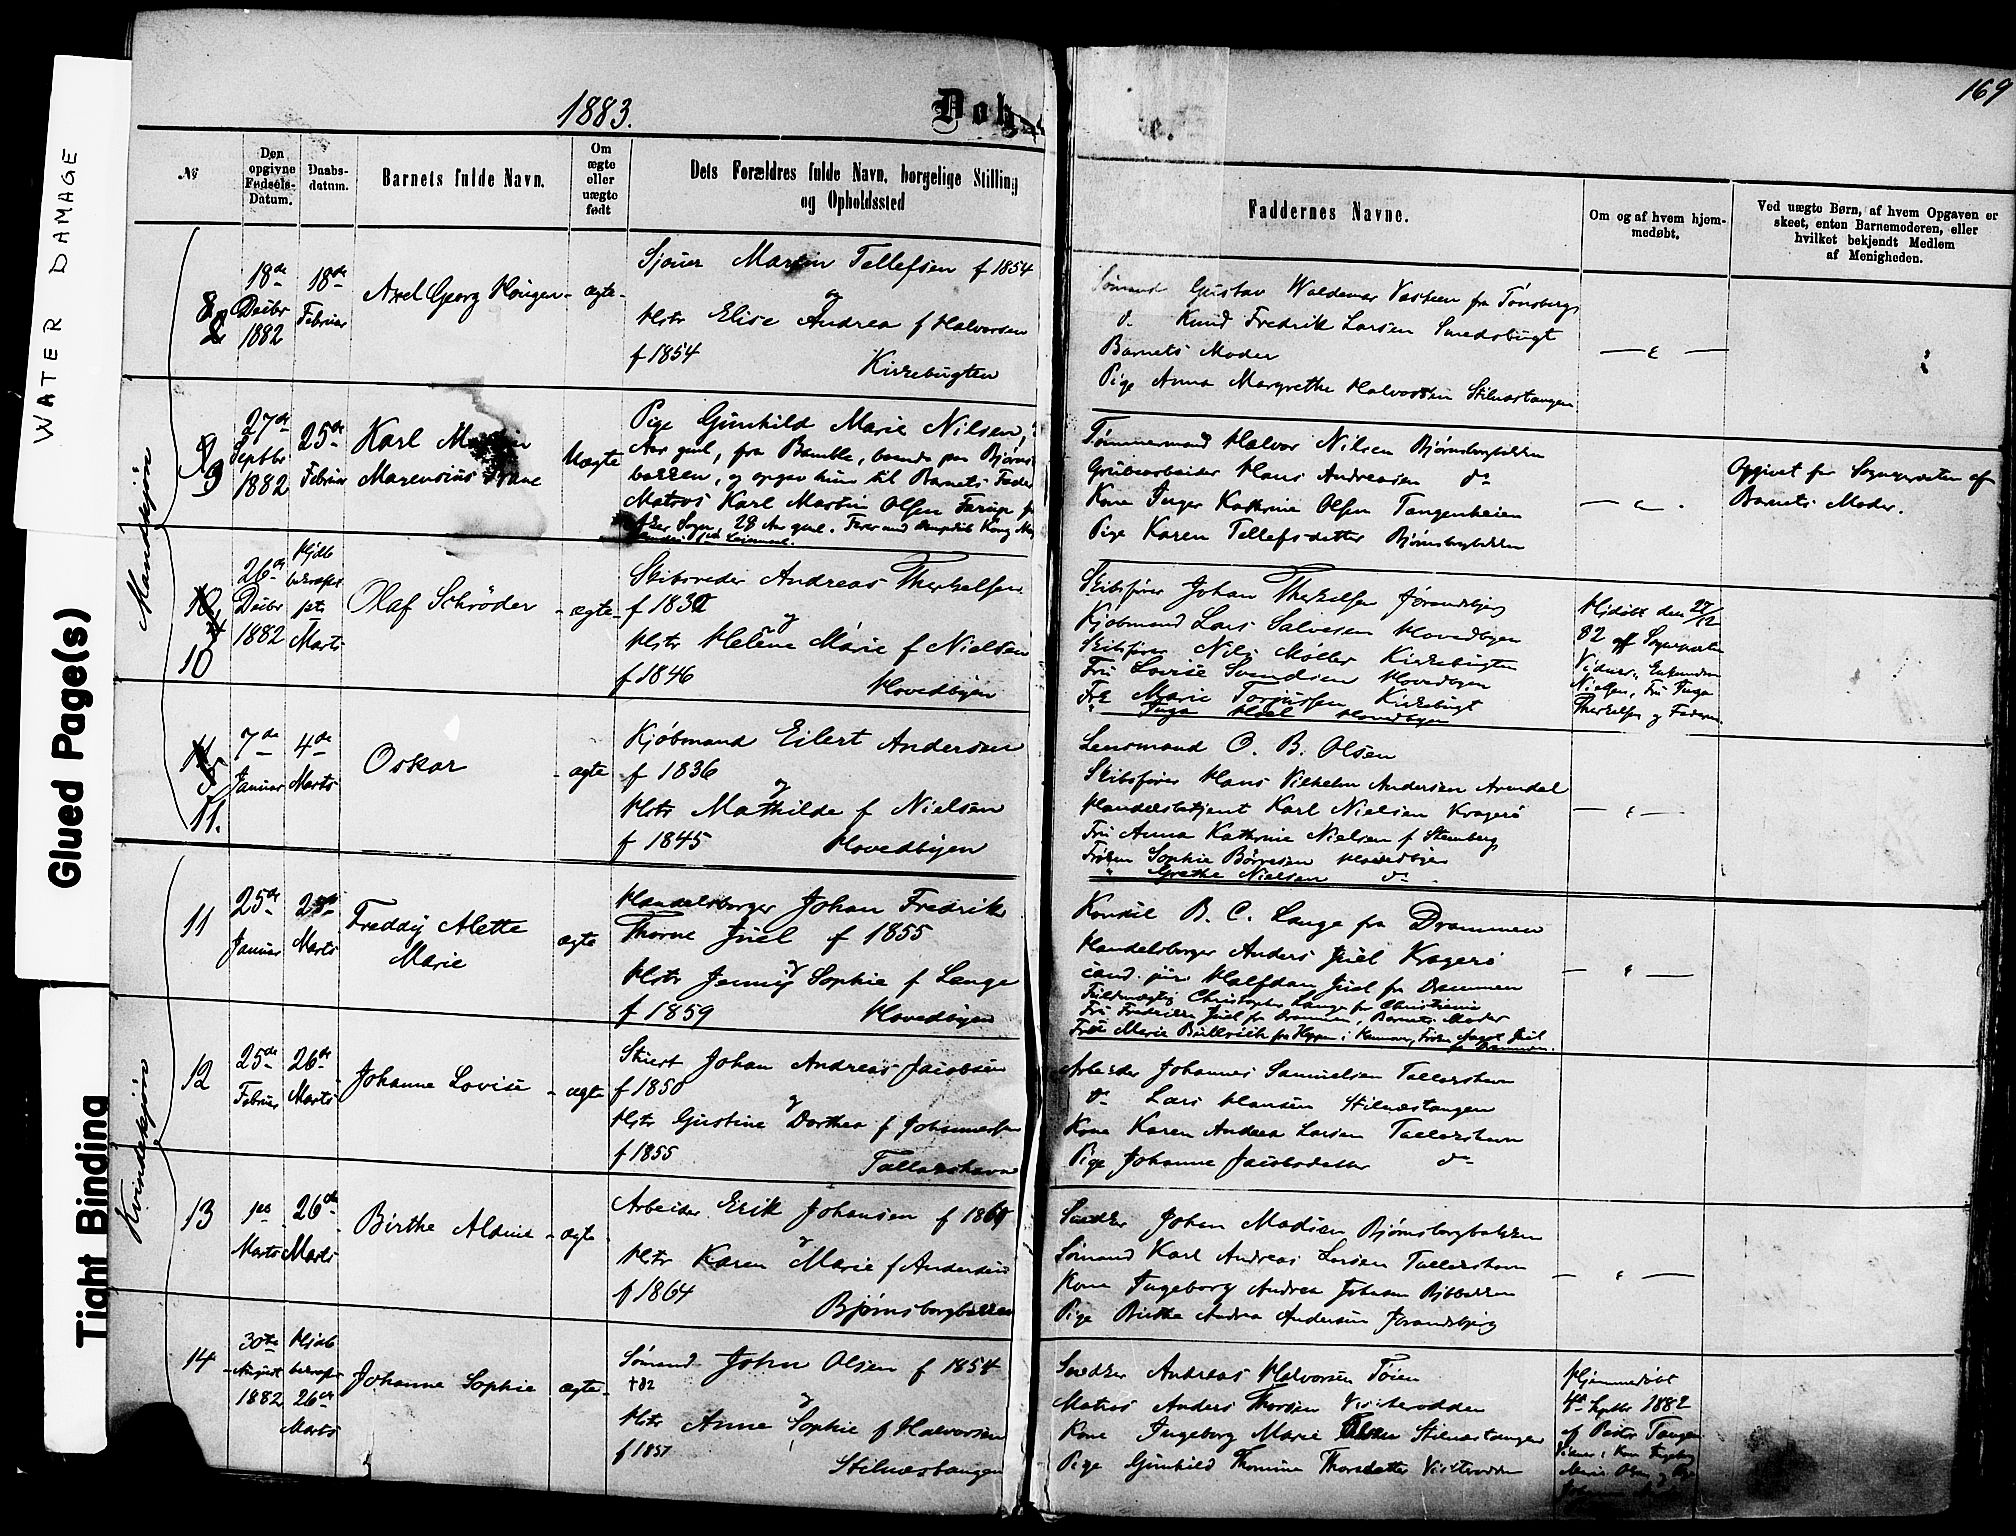 WATER DAMAGE
Glued Page(s)
Tight Binding
1883.
Døb
e.
169
№
Den opgivne Fødsels-Datum.
Daabs-datum.
Barnets fulde Navn.
Om ægte eller uægte født
Dets Forældres fulde Navn, borgelige Stilling
og Opholdssted
Faddernes Navne.
Om og af hvem hjem-
medøbt.
Ved uægte Børn, af hvem Opgaven er
skeet, enten Barnemoderen, eller
hvilket bekjendt Medlem
af Menigheden.
Mandskjøn
8
18de Decbr 1882
18de Februar
Axel Georg Hougen
ægte
Sjouer Martin Tellefsen f 1854
og
Hstr Elise Andrea f Halvorsen
f 1854 Kirkebugten
Sømand Gustav Waldemar fra Tønsberg
do Knud Fredrik Larsen Smedsbugt
Barnets Moder
Pige Anna Margrethe Halvorsen Stilnæstangen
9
27de Septbr 1882
25de Februar
Karl Martin
Marensius
Uægte
Pige Gunhild Marie Nilsen,
Aar gml, fra Bamble, boende paa Bjørns
bakken, og opgav hun til Barnets Fader
Matros Karl Martin Olsen
Sogn, 28 Aar gml.
Tømmermand Halvor Nilsen Bjørnsborgbakken
Grubearbeider Hans Andreasen do
Kone Inger Kathrine Olsen Tangenheien
Pige Karen Tellefsdatter Bjørnsborgbakken
Opgivet for Sognepresten af
Barnets Moder.
10
26de Decbr 1882
Hjdb bekræftet
1ste Marts
Olaf Schrøder
ægte
Skibsreder Andreas Therkelsen
f 1832
og
Hstr Helene Marie f Nielsen
f 1846 Hovedbyen
Skibsfører Johan Therkelsen Jørandsbjerg
Kjøbmand Lars Salvesen Hovedbyen
Skibsfører Nils Møller Kirkebugten
Fru Lovise Svendsen Hovedbyen
Frk Marie Torjussen Kirkebugt
" Inga Hovedbyen
Hjdøbt den 27/12
82 af Sognepresten
Vidner, Enkemadam
Nielsen, Fru Inga
Therkelsen og Faderen
11.
7de Januar
4de Marts
Oskar
ægte
Kjøbmand Eilert Andersen
f 1836
og
Hstr Mathilde f Nielsen
f 1845 Hovedbyen
Lensmand O. B. Olsen
Skibsfører Hans Vilhelm Andersen Arendal
Handelsbetjent Karl Nielsen Kragerø
Fru Anna Kathrine Nielsen f Stenberg
Frøken Sophie Børresen Hovedbyen
" Grethe Nielsen do
Kvindekjøn
11
25de Januar
25de Marts
Freddy Alette
Marie
ægte
Handelsborger Johan Fredrik
Thorne Juel f 1855
og
Hstr Jenny Sophie f Lange
f 1859 Hovedbyen
Konsul B. C. Lange fra Drammen
Handelsborger Anders Juel Kragerø
cand. jur. Halfdan Juel fra Drammen
Fuldmægtig Christopher Lange fra Christiania
Fru Fredrikke Juel fra Drammen, Barnets Moder
12
25de Februar
26de Marts
Johanne Lovise
ægte
Stuert Johan Andreas Jacobsen
f 1850
og
Hstr Gustine Dorthea f Johannessen
f 1855
Tallakshavn
Arbeider Johannes Samuelsen Tallakshavn
do Lars Hansen Stilnæstangen
Kone Karen Andrea Larsen Tallakshavn
Pige Johanne Jacobsdatter do
13
1ste Marts
26de Marts
Birthe Aldine
ægte
Arbeider Erik Johansen f 1864
og
Hstr Karen Marie f Andersen
f 1864
Bjørnsborgbakken
Snedker Johan Madsen Bjørnsborgbakken
Sømand Karl Andreas Larsen Tallakshavn
Kone Ingeborg Andrea Johnsen Bjbbakken
Pige Birthe Andrea Andersen Jørandsbjerg
14
30te August 1882
Hjdb bekræftet
26de Marts
Johanne Sophie
ægte
Sømand John Olsen f 1854
+82
og
Hstr Anne Sophie f Halvorsen
f 1857
Stilnæstangen
Snedker Andreas Halvorsen Tøien
Matros Anders Thorsen Visterodden
Kone Ingeborg Marie Olsen Stilnæstangen
Pige Gunhild Thomine Thorsdatter Visterodden
Hjemmedøbt
4de Septbr 1882
af Peder Tangen